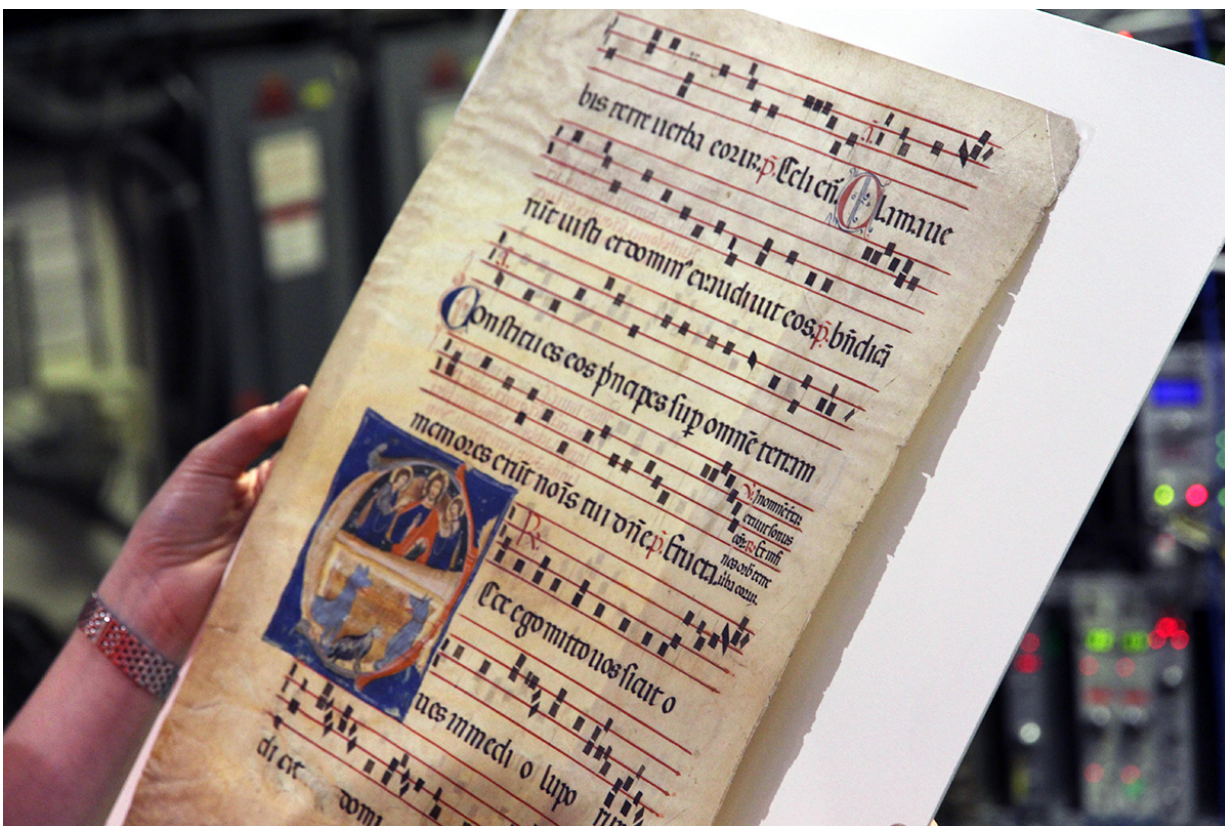 bis terre uerba eorum. p̄. Celi en̄. Clamaue
rūt iusti et dominꝰ exaudiuit eos. p̄. bn̄dicā
Constitues eos p̍ncipes sup omnē terram
memores erūt noīs tui dn̄e. p̄. Eructa.
V. In omnē terrā
exiuit sonus
eoꝝ. R. Et in fi
nes orb̄ terre
uba eorum.
R. Ecce ego mitto uos sicut o
ues in medi o lupo
di cit domi